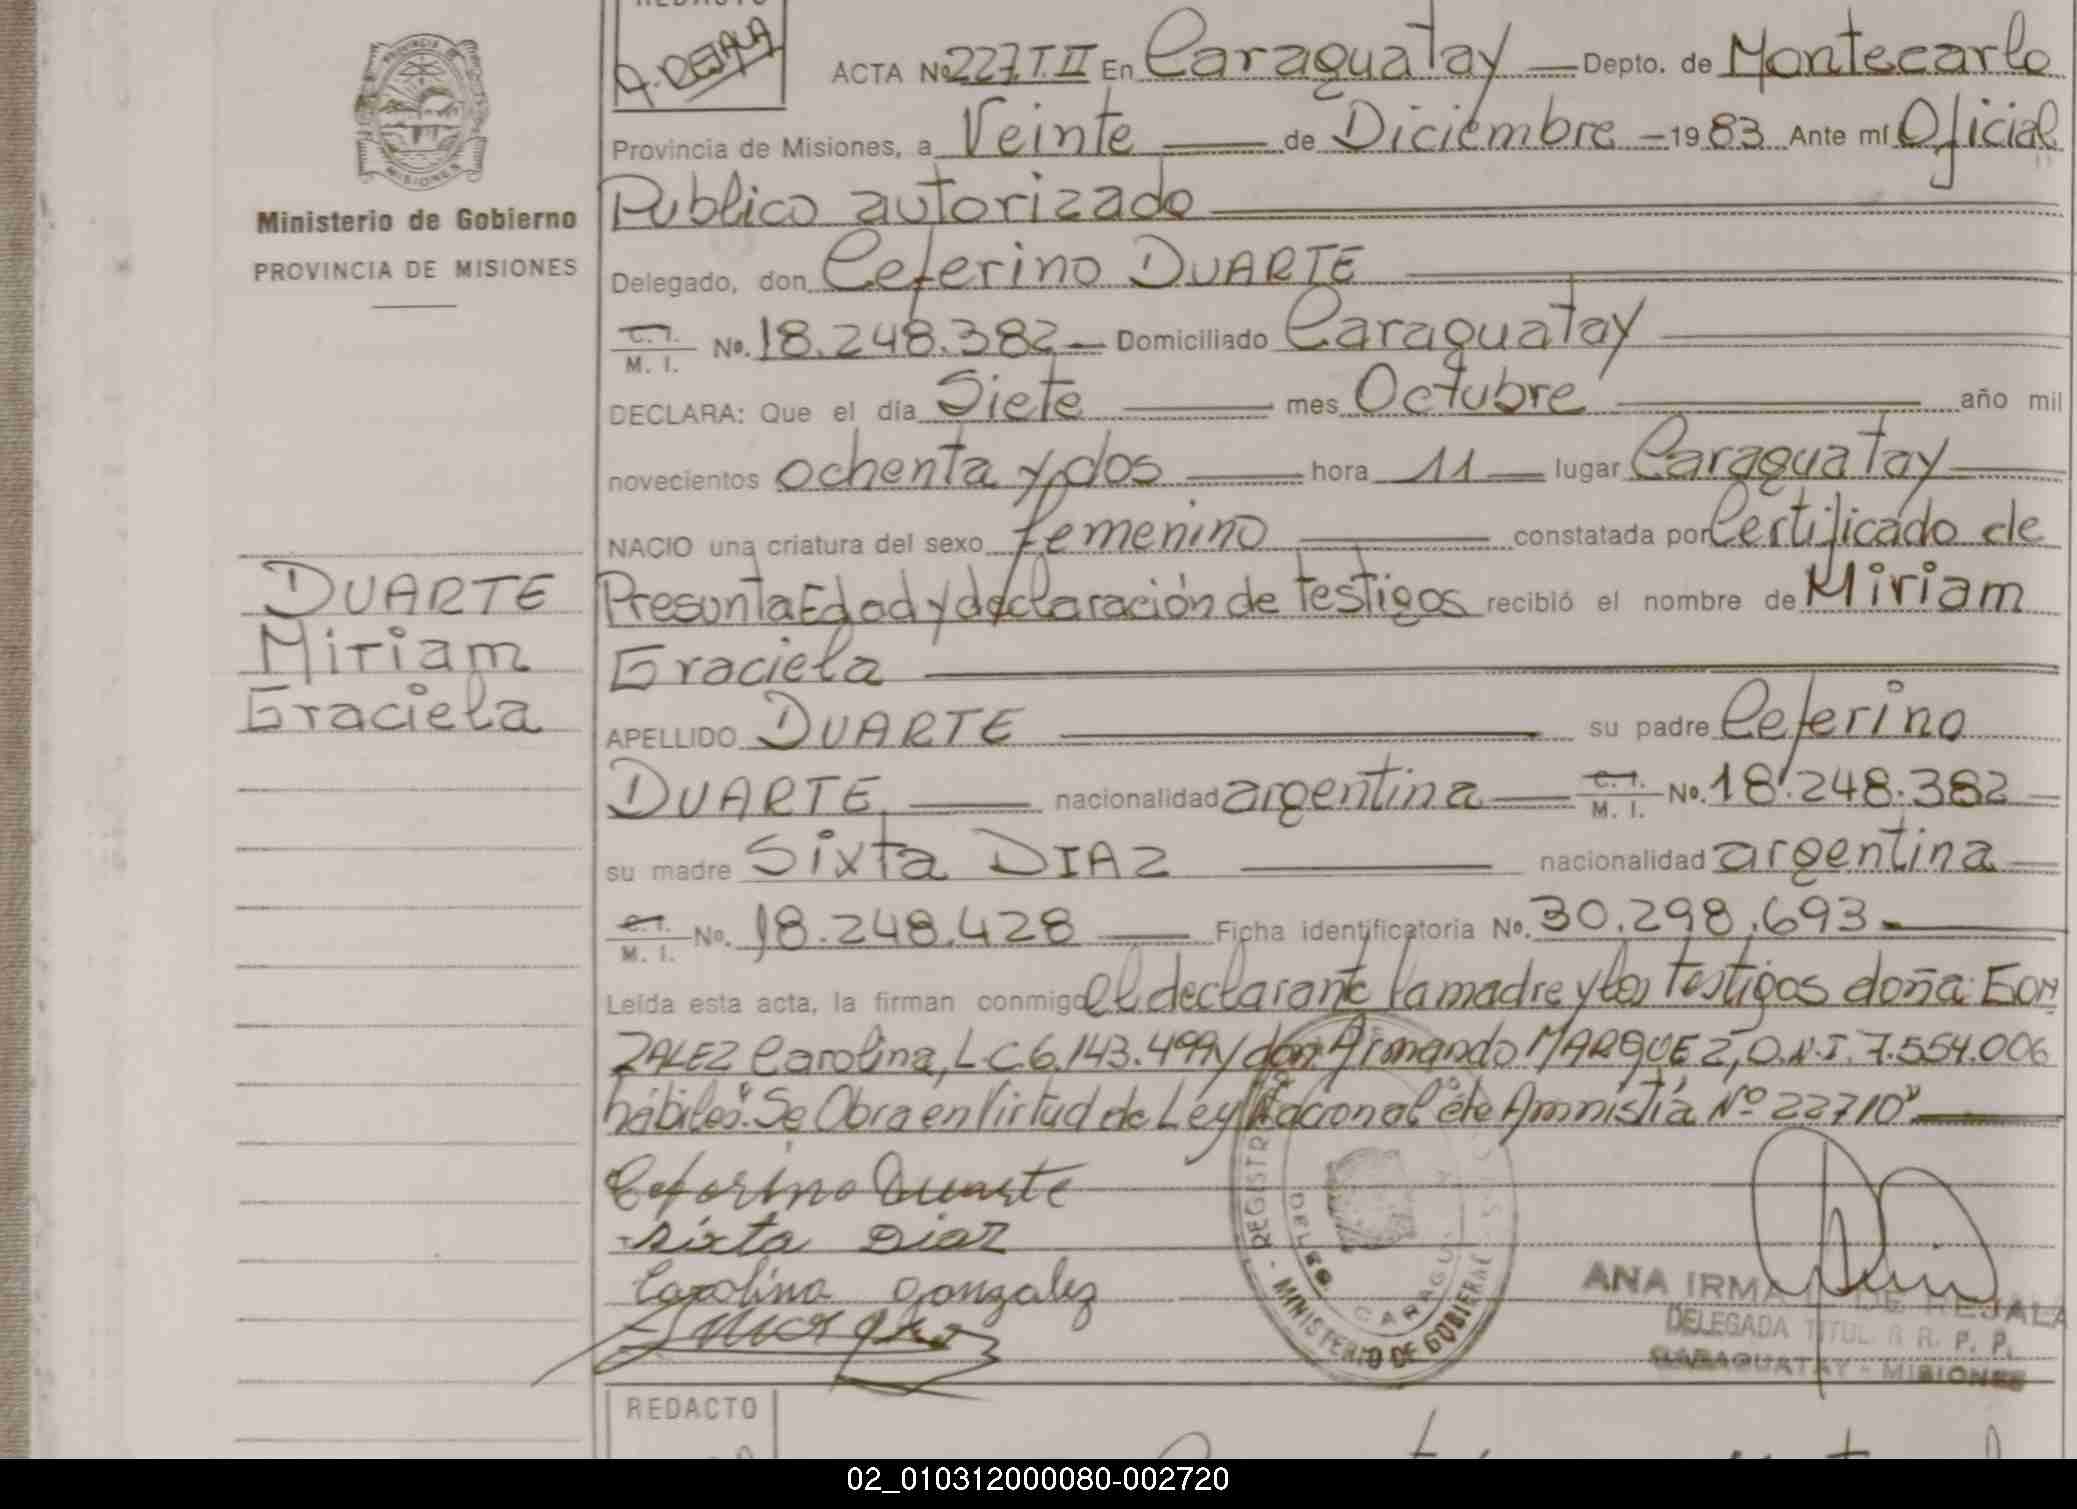 REDACTO
A. REJALA
PROVINCIA DE
MISIONES
Ministerio de Gobierno
PROVINCIA DE MISIONES
DUARTE
Miriam
Graciela
ACTA Nº 227. T. II En Caraguatay — Depto. de Montecarlo
Provincia de Misiones, a Veinte — de Diciembre - 1983 Ante mí Oficial
Publico autorizado
Delegado, don Ceferino DUARTE
C. I. M. I. Nº. 18.248.382 — Domiciliado Caraguatay
DECLARA: Que el día Siete — mes Octubre — año mil
novecientos ochenta y dos — hora 11 — lugar Caraguatay
NACIO una criatura del sexo femenino — constatada por Certificado de
Presunta Edad y declaración de testigos recibió el nombre de Miriam
Graciela
APELLIDO DUARTE — su padre Ceferino
DUARTE — nacionalidad argentina — C. I. M. I. Nº. 18.248.382
su madre Sixta DIAZ — nacionalidad argentina
C. I. M. I. Nº. 18.248.428 — Ficha identificatoria Nº. 30.298.693.-
Leída esta acta, la firman conmigo el declarante la madre y los testigos doña: GON
ZALEZ Carolina, L.C. 6.143.499 y don Armando MARQUEZ, D.N.I. 7.554.006
hábiles. "Se Obra en Virtud de Ley Nacional de Amnistía Nº 22710"
Ceferino Duarte
Sixta Diaz
Carolina Gonzalez
REGISTR
MINISTERIO DE GOBIERNO
DELEG
CARAGU
ANA IRMA DE REJALA
DELEGADA TITUL. R. R. P. P.
CARAGUATAY - MISIONES
REDACTO
02_010312000080-002720